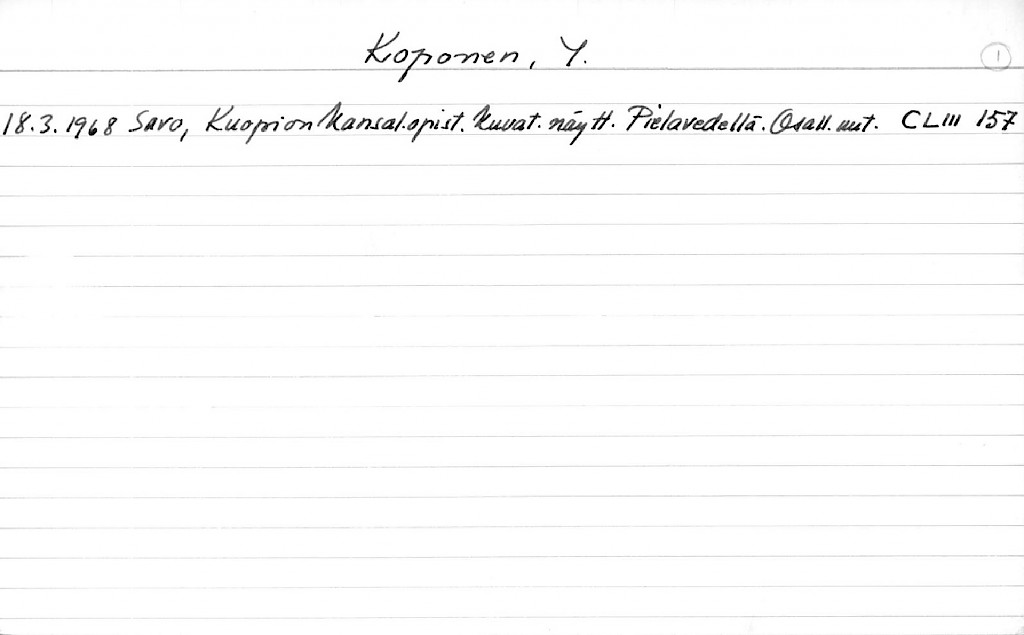 Koponen, Y.
1
18.3.1968 Savo, Kuopion Kansal.opist. kuvat. näytt. Pielavedellä. Osall. mut. CLIII 157